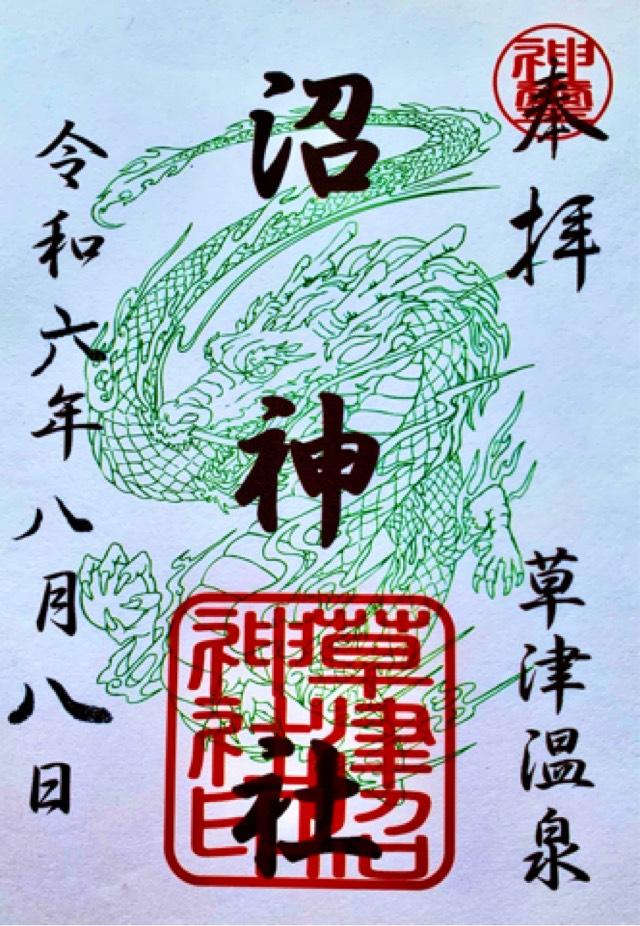 奉拝
神璽
草津温泉
沼神社
草津沼神社印
令和六年八月八日